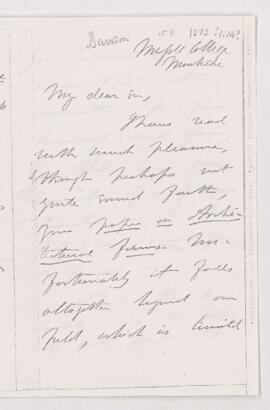 Dawson 158 1873 ?/74?
McGill College
Montreal
My dear Sir,
I have read
with much pleasure,
though perhaps not
quite sound faith,
your paper on Archi
tectural forms. Un=
fortunately it falls
altogether beyond our
field, which is limited